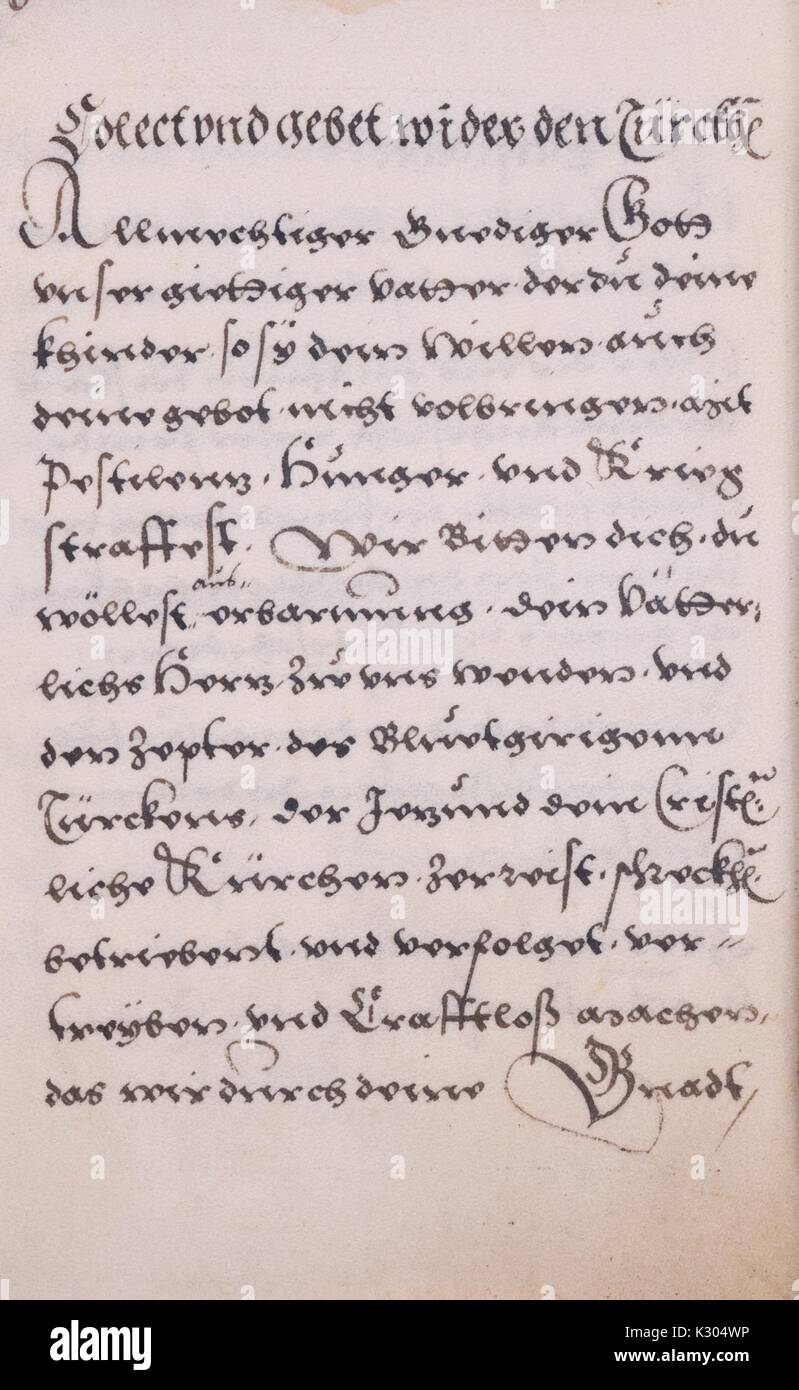 Colect vnd gebet wider den Türckh
Allmechtiger Gnediger Gott
vnser giettiger vatter der dŭ deine
khinder so sÿ dein willen aŭch
deine gebot nicht volbringen mit
Pestilentz, Hŭnger vnd Krieg
straffest. Wir Bitten dich, dŭ
aus
wöllest erbarmŭng, dein Vätter,
lichs Hertz zŭe vns wenden, vnd
den Zepter des Blŭetgirigenn
Türckens, der Jetzŭnd dein Cristen
liche Kürchen, zerreist, schreckhen
betriebent, vnd verfolget, ver=
treyben, vnd Crafftloß machen,
das wir dŭrch deine Gnadt,
alamy
alamy
alamy
a
alamy
Image ID: K304WP
www.alamy.com